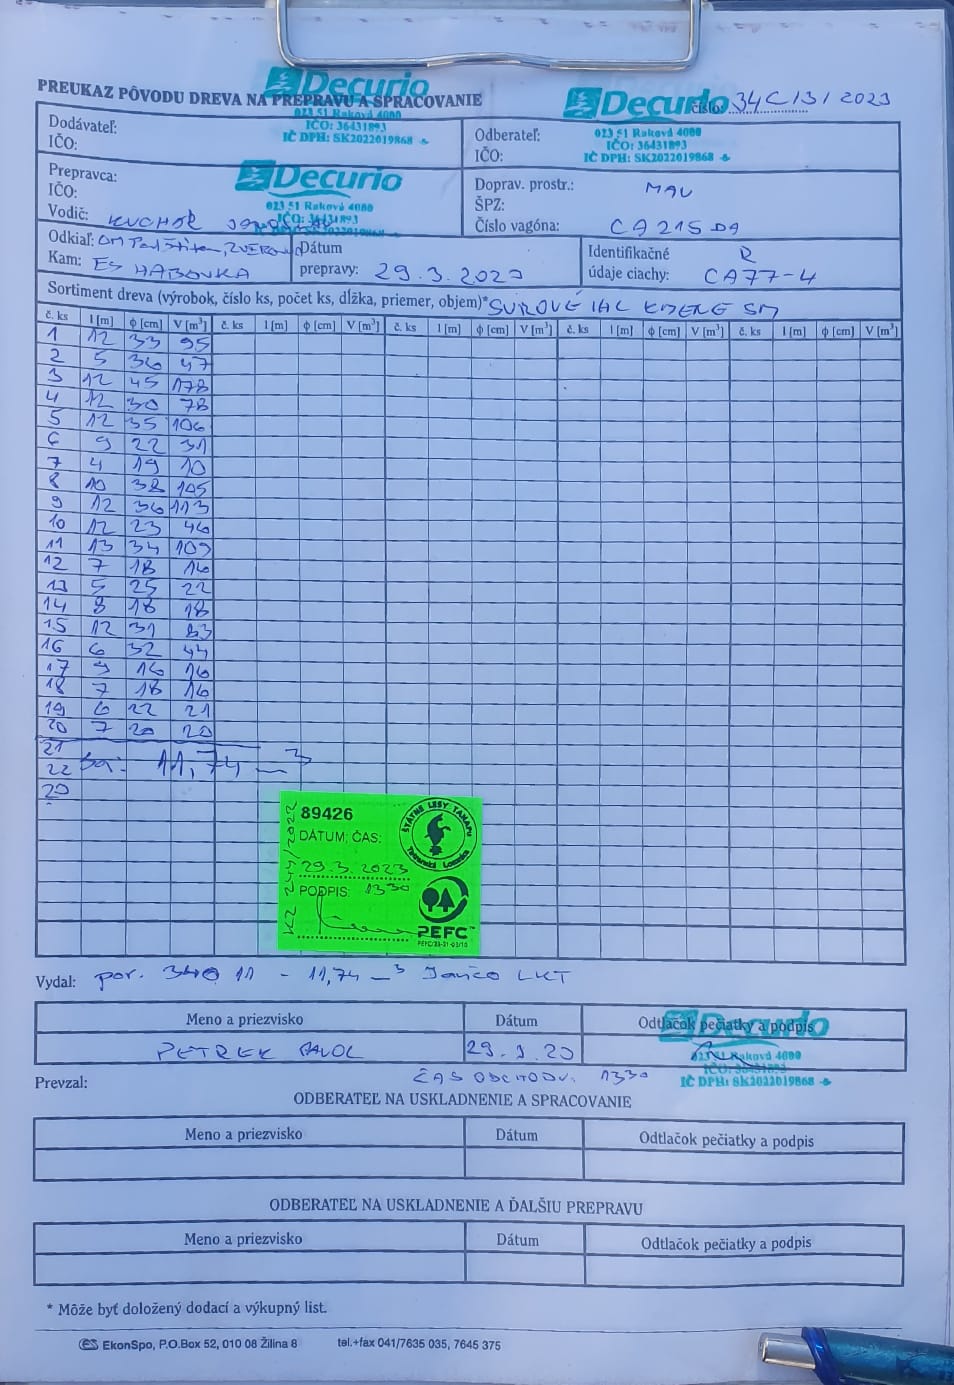 PREUKAZ PÔVODU DREVA NA PREPRAVU A SPRACOVANIE
Decurio
023 51 Raková 4000
IČO: 36431893
IČ DPH: SK2022019868
číslo: 34C/3/2023
Decurio
023 51 Raková 4000
IČO: 36431893
IČ DPH: SK2022019868
Dodávateľ:
IČO:
Odberateľ:
IČO:
Prepravca:
IČO:
Vodič: KUCHÁR
Decurio
023 51 Raková 4000
IČO: 36431893
Doprav. prostr.: MAN
ŠPZ:
Číslo vagóna: CA 215 DA
Odkiaľ: OM
Kam: ES HABOVKA
Dátum
prepravy: 29.3.2023
Identifikačné R
údaje ciachy: CA77-4
Sortiment dreva (výrobok, číslo ks, počet ks, dĺžka, priemer, objem)* SUROVÉ IHL KMENE SM
č. ks l [m] ϕ [cm] V [m³] č. ks l [m] ϕ [cm] V [m³] č. ks l [m] ϕ [cm] V [m³] č. ks l [m] ϕ [cm] V [m³] č. ks l [m] ϕ [cm] V [m³]
1 12 33 95
2 5 36 47
3 12 45 178
4 12 30 78
5 12 35 106
6 9 22 31
7 4 19 10
8 10 38 105
9 12 36 113
10 12 23 46
11 13 34 109
12 7 18 16
13 5 25 22
14 8 18 18
15 12 31 83
16 6 32 44
17 9 16 16
18 7 18 16
19 6 22 21
20 7 20 20
21
22 11,74 m³
89426
DÁTUM; ČAS:
29.3.2023
PODPIS: 1330
ŠTÁTNE LESY TANAPU
Tatranská Lomnica
PEFC™
Vydal: por. 11 - 11,74 m³ Jančo LKT
Meno a priezvisko Dátum Odtlačok pečiatky a podpis
PETREK PAVOL 29.3.23
Decurio
023 51 Raková 4000
IČO: 36431893
IČ DPH: SK2022019868
Prevzal: ČAS ODCHODU: 1330
ODBERATEĽ NA USKLADNENIE A SPRACOVANIE
Meno a priezvisko Dátum Odtlačok pečiatky a podpis
ODBERATEĽ NA USKLADNENIE A ĎALŠIU PREPRAVU
Meno a priezvisko Dátum Odtlačok pečiatky a podpis
* Môže byť doložený dodací a výkupný list.
EkonSpo, P.O.Box 52, 010 08 Žilina 8 tel.+fax 041/7635 035, 7645 375